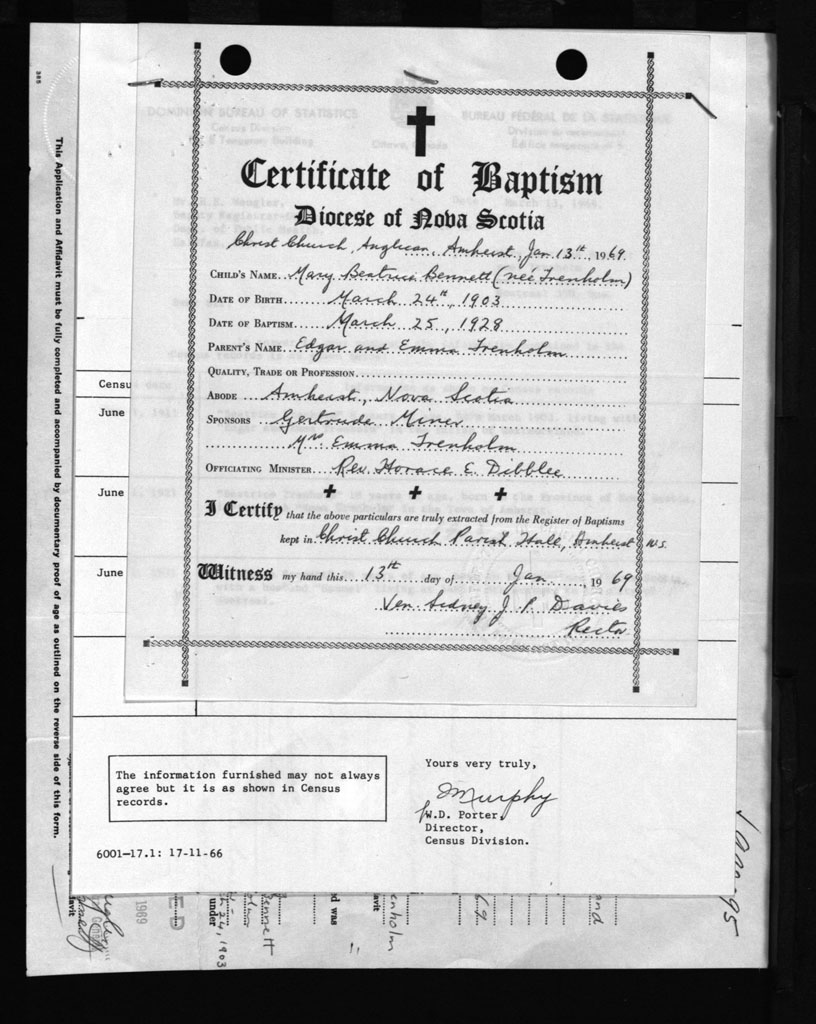 Certificate of Baptism
Diocese of Nova Scotia
Christ Church, Anglican, Amherst, Jan 13th, 1969
CHILD'S NAME Mary Beatrice Bennett (neé Trenholm)
DATE OF BIRTH March 24th, 1903
DATE OF BAPTISM March 25, 1928
PARENT'S NAME Edgar and Emma Trenholm
QUALITY, TRADE OR PROFESSION
ABODE Amherst, Nova Scotia
SPONSORS Gertrude Miner
Mrs. Emma Trenholm
OFFICIATING MINISTER Rev. Horace E. Dibblee
I Certify that the above particulars are truly extracted from the Register of Baptisms
kept in Christ Church Parish Hall, Amherst N.S.
Witness my hand this 13th day of Jan, 1969
Ven. Sidney J. P. Davies
Rector
DOMINION BUREAU OF STATISTICS
BUREAU FÉDÉRAL DE LA STATISTIQUE
Censu
June
June
June
The information furnished may not always
agree but it is as shown in Census
records.
Yours very truly,
Murphy
W.D. Porter,
Director,
Census Division.
6001-17.1: 17-11-66
This Application and Affidavit must be fully completed and accompanied by documentary proof of age as outlined on the reverse side of this form.
1969
ED
Bennett
under
24, 1903
d was
avit
enholm
69
and